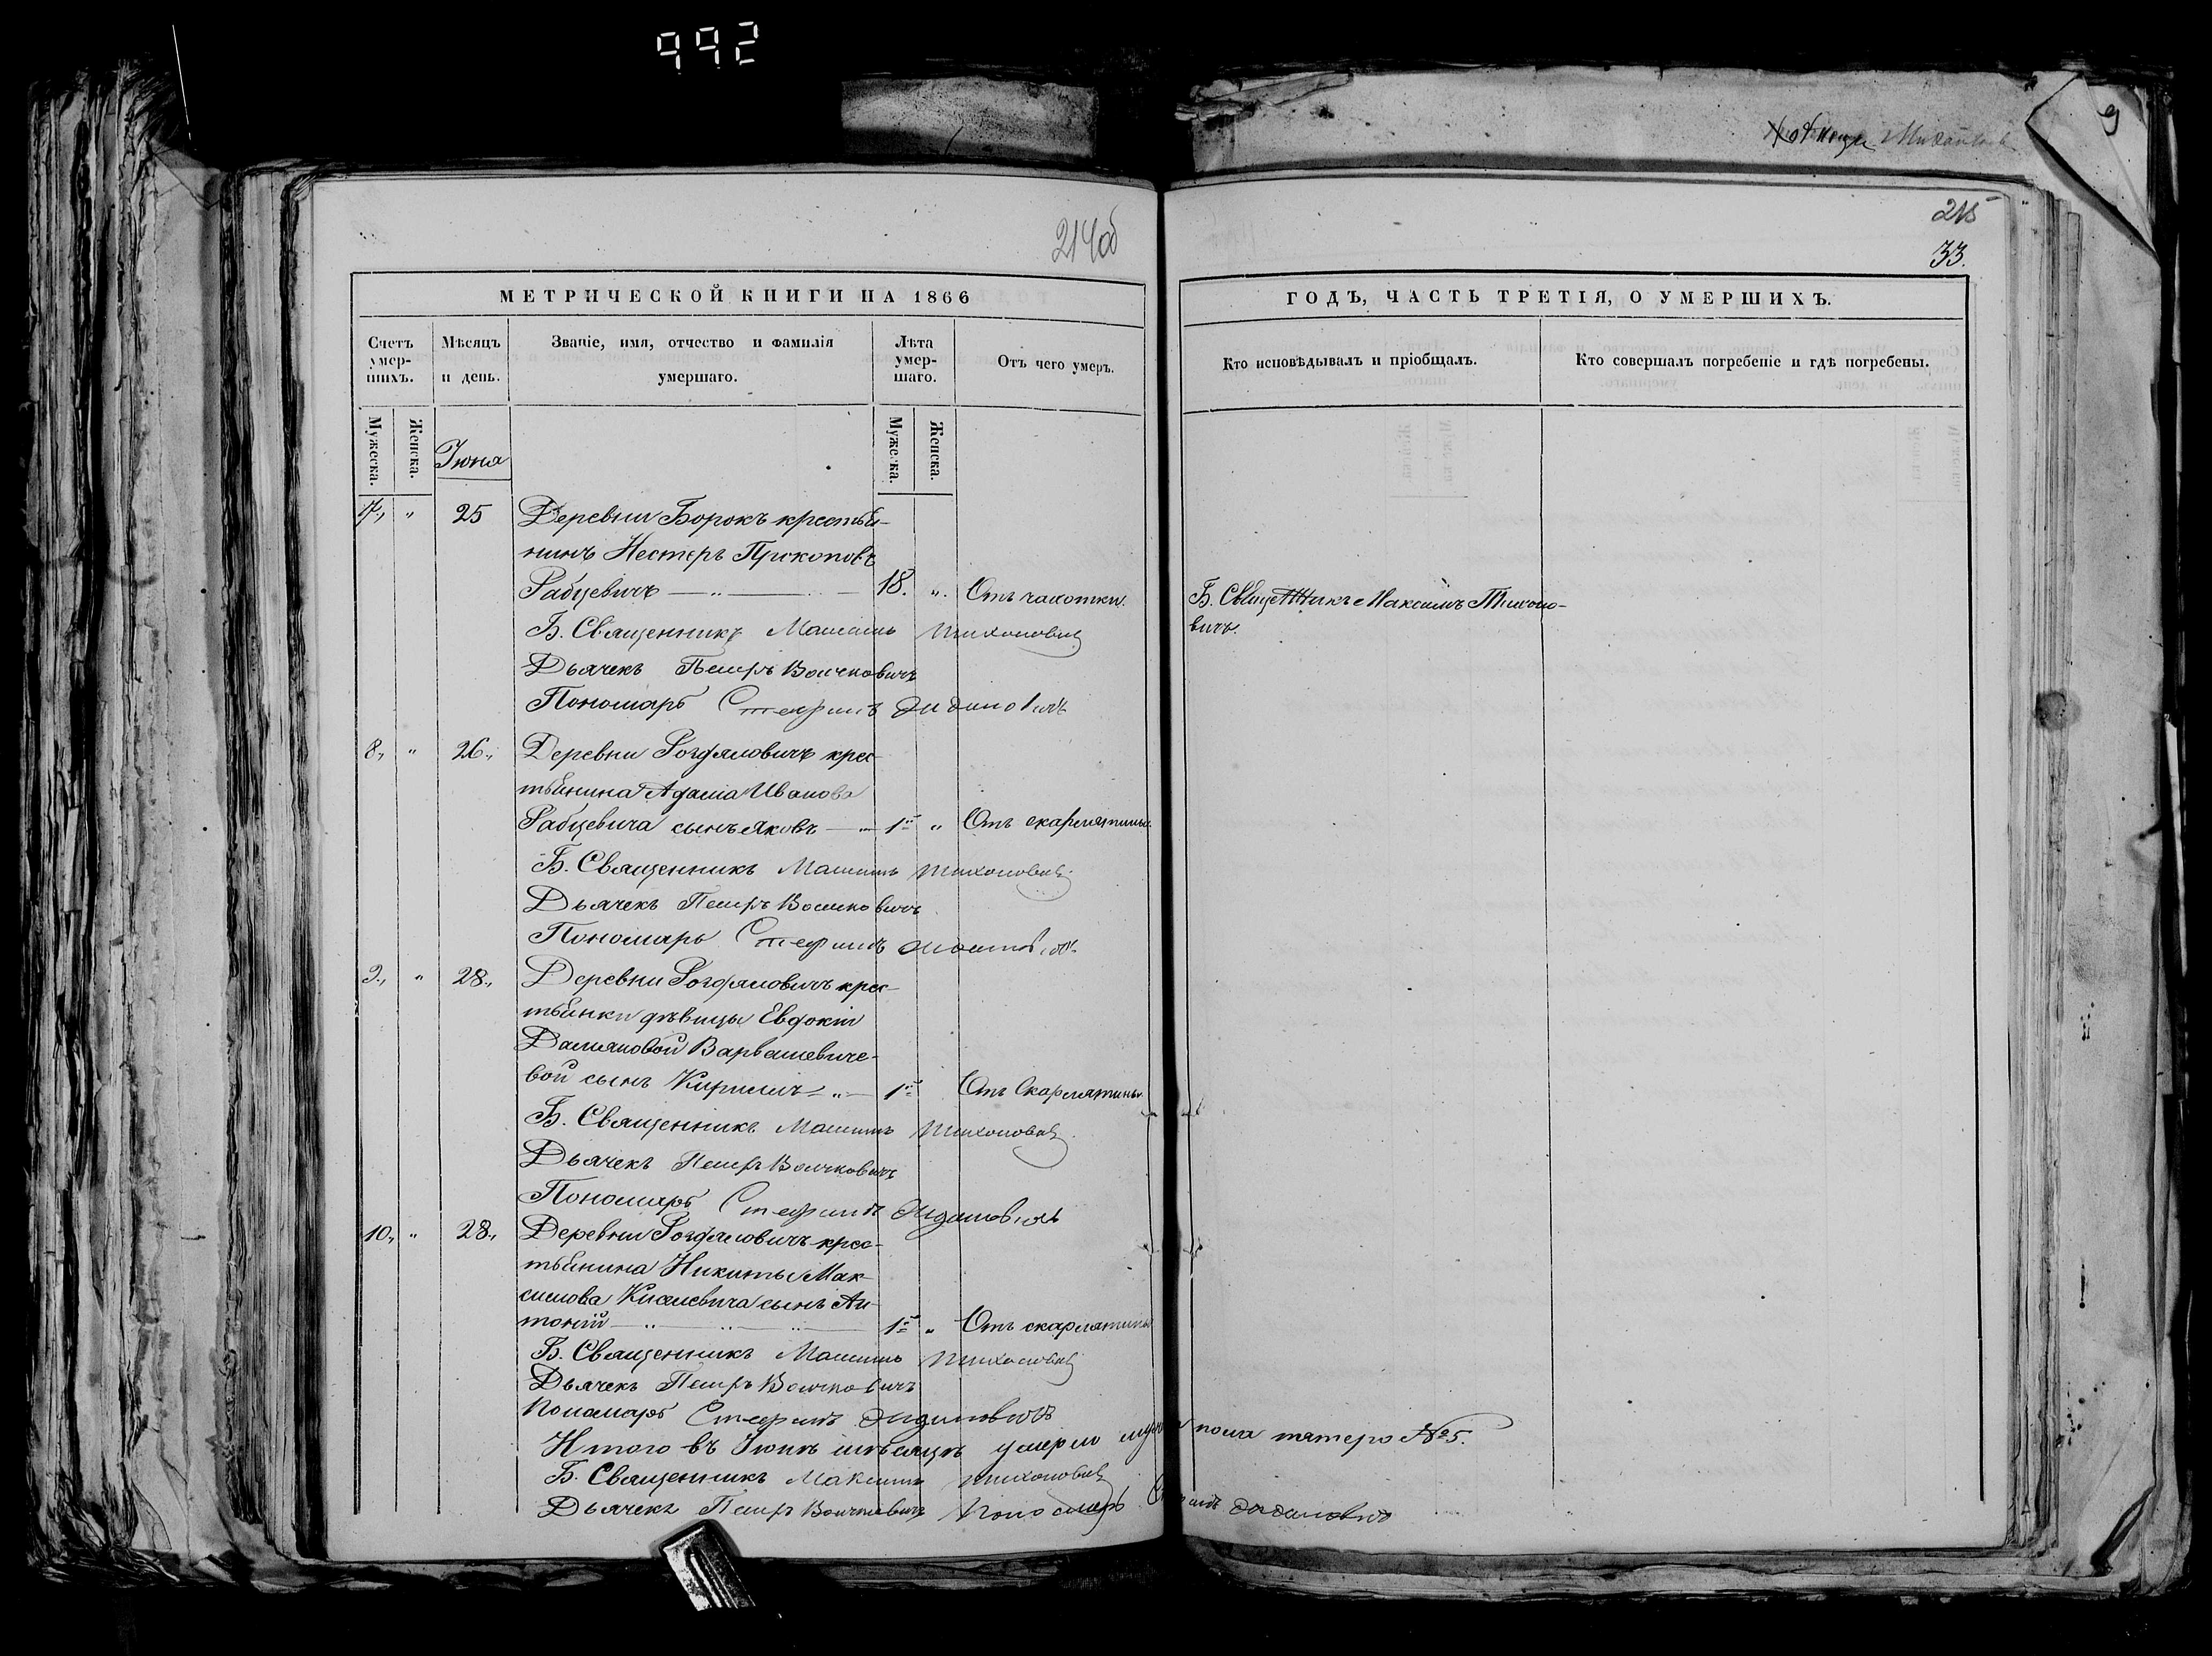 992
214об
215
33.
МЕТРИЧЕСКОЙ КНИГИ НА 1866
ГОДЪ, ЧАСТЬ ТРЕТІЯ, О УМЕРШИХЪ.
Счетъ умер-шихъ.
Мѣсяцъ и день.
Званіе, имя, отчество и фамилія умершаго.
Лѣта умер-шаго.
Отъ чего умеръ.
Кто исповѣдывалъ и пріобщалъ.
Кто совершалъ погребеніе и гдѣ погребены.
Мужеска.
Женска.
Мужеска.
Женска.
Іюня
7., " 25 Деревни Борокъ крестья-
нинъ Нестеръ Прокоповъ
Рабцевичъ 18. ". Отъ чахотки. Б. Священникъ Максимъ Тихоно-
вичъ.
Б. Священникъ Максимъ Тихоновичъ
Дьячекъ Петръ Волчковичъ
Пономарь Стефанъ
8., " 26., Деревни крес-
тьянина Адама Иванова
Рабцевича сынъ Яковъ 1 " Отъ скарлятины
Б. Священникъ Максимъ Тихоновичъ
Дьячекъ Петръ Волчковичъ
Пономарь Стефанъ
9., " 28., Деревни крес-
тьянки дѣвицы Евдокіи
Дамяновой Варвашевиче-
вой сынъ Кириллъ 1 Отъ Скарлятины
Б. Священникъ Максимъ Тихоновичъ
Дьячекъ Петръ Волчковичъ
Пономарь Стефанъ
10., " 28., Деревни крес-
тьянина Никиты Мак-
симова Киселевича сынъ Ан-
тоній 1 " Отъ скарлятины
Б. Священникъ Максимъ Тихоновичъ
Дьячекъ Петръ Волчковичъ
Пономарь Стефанъ
Итого въ Іюнѣ мѣсяцѣ умерло муж. пола пятеро №5.
Б. Священникъ Максимъ Тихоновичъ
Дьячекъ Петръ Волчковичъ Пономарь Стефанъ